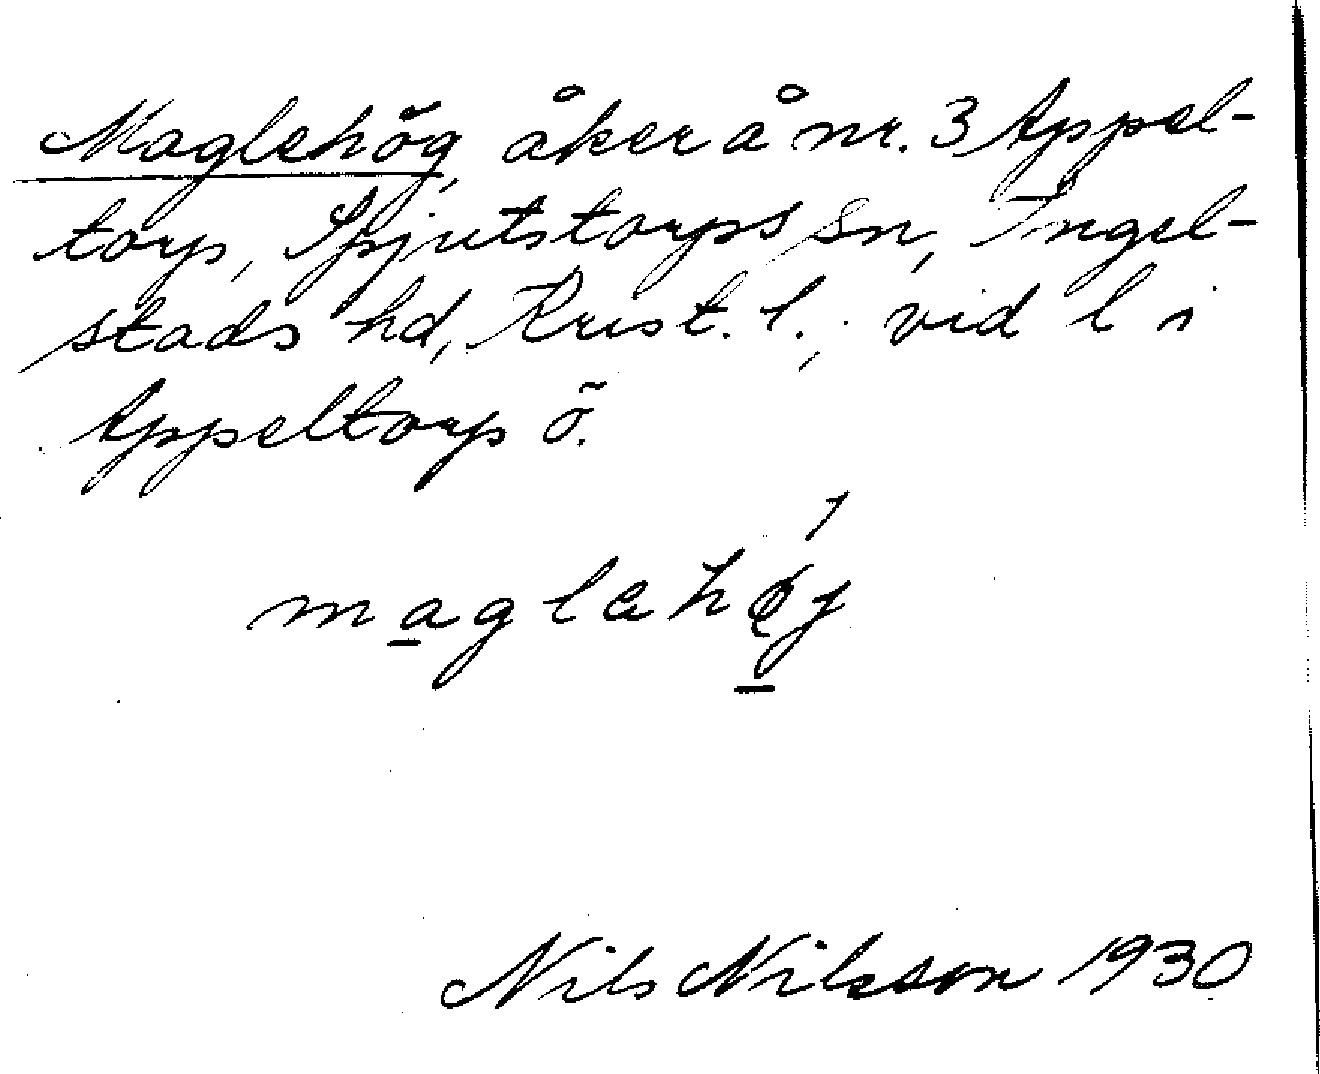 Maglehög, åker å nr. 3 Appel-
torp, Spjutstorps sn, Ingel-
stads hd, Krist. l.; vid l i
Appeltorp ö.
maglahǿj
Nils Nilsson 1930